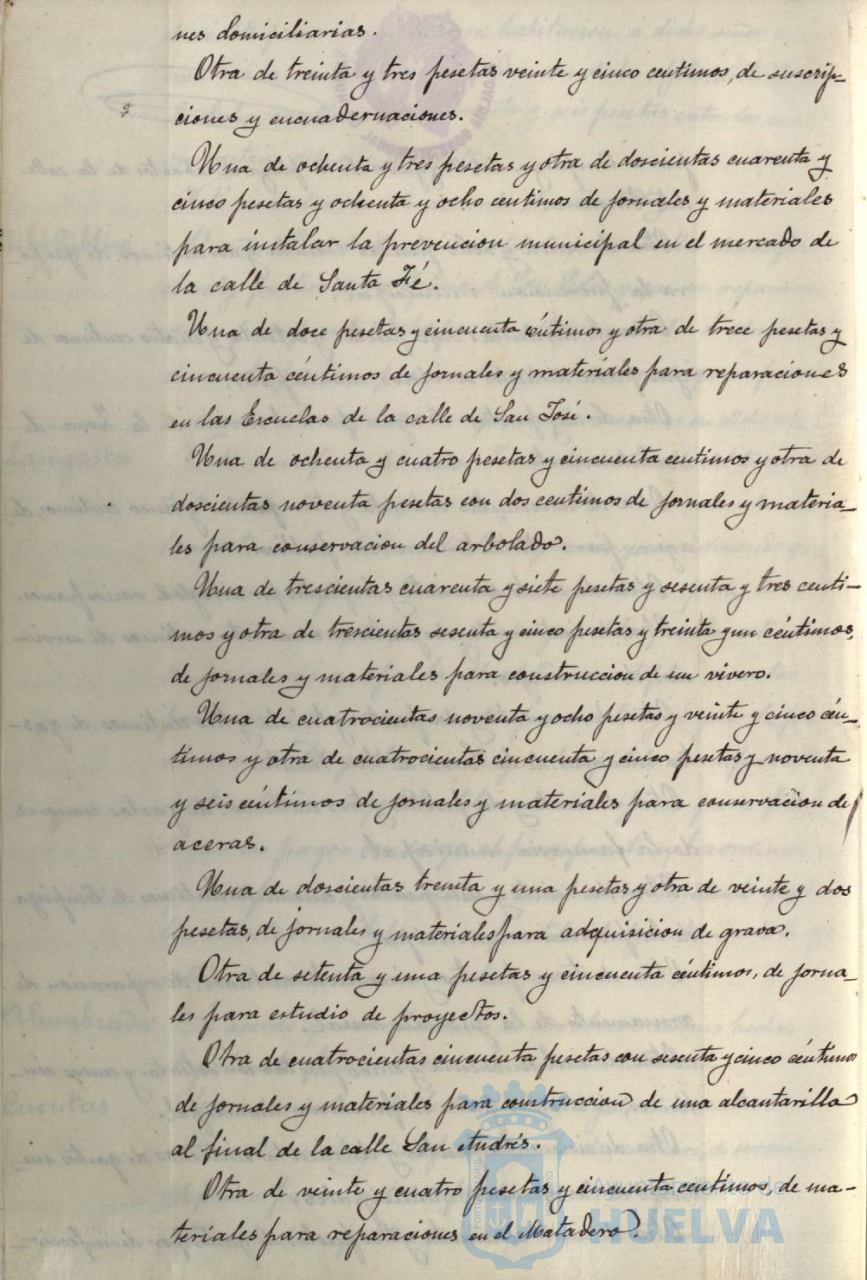 nes domiciliarias.
Otra de treinta y tres pesetas veinte y cinco centimos, de suscrip-
ciones y encuadernaciones.
Una de ochenta y tres pesetas y otra de doscientas cuarenta y
cinco pesetas y ochenta y ocho centimos de jornales y materiales
para instalar la prevencion municipal en el mercado de
la calle de Santa Fé.
Una de doce pesetas y cincuenta céntimos y otra de trece pesetas y
cincuenta céntimos de jornales y materiales para reparaciones
en las Escuelas de la calle de San José.
Una de ochenta y cuatro pesetas y cincuenta centimos y otra de
doscientas noventa pesetas con dos centimos de jornales y materia-
les para conservacion del arbolado.
Una de trescientas cuarenta y siete pesetas y sesenta y tres centi-
mos y otra de trescientas sesenta y cinco pesetas y treinta y un céntimos,
de jornales y materiales para construccion de un vivero.
Una de cuatrocientas noventa y ocho pesetas y veinte y cinco cén-
timos y otra de cuatrocientas cincuenta y cinco pesetas y noventa
y seis céntimos de jornales y materiales para conservacion de
aceras.
Una de doscientas treinta y una pesetas y otra de veinte y dos
pesetas, de jornales y materiales para adquisicion de grava.
Otra de setenta y una pesetas y cincuenta céntimos, de jorna-
les para estudio de proyectos.
Otra de cuatrocientas cincuenta pesetas con sesenta y cinco céntimos
de jornales y materiales para construccion de una alcantarilla
al final de la calle San Andrés.
Otra de veinte y cuatro pesetas y cincuenta centimos, de ma-
teriales para reparaciones en el Matadero.
HUELVA